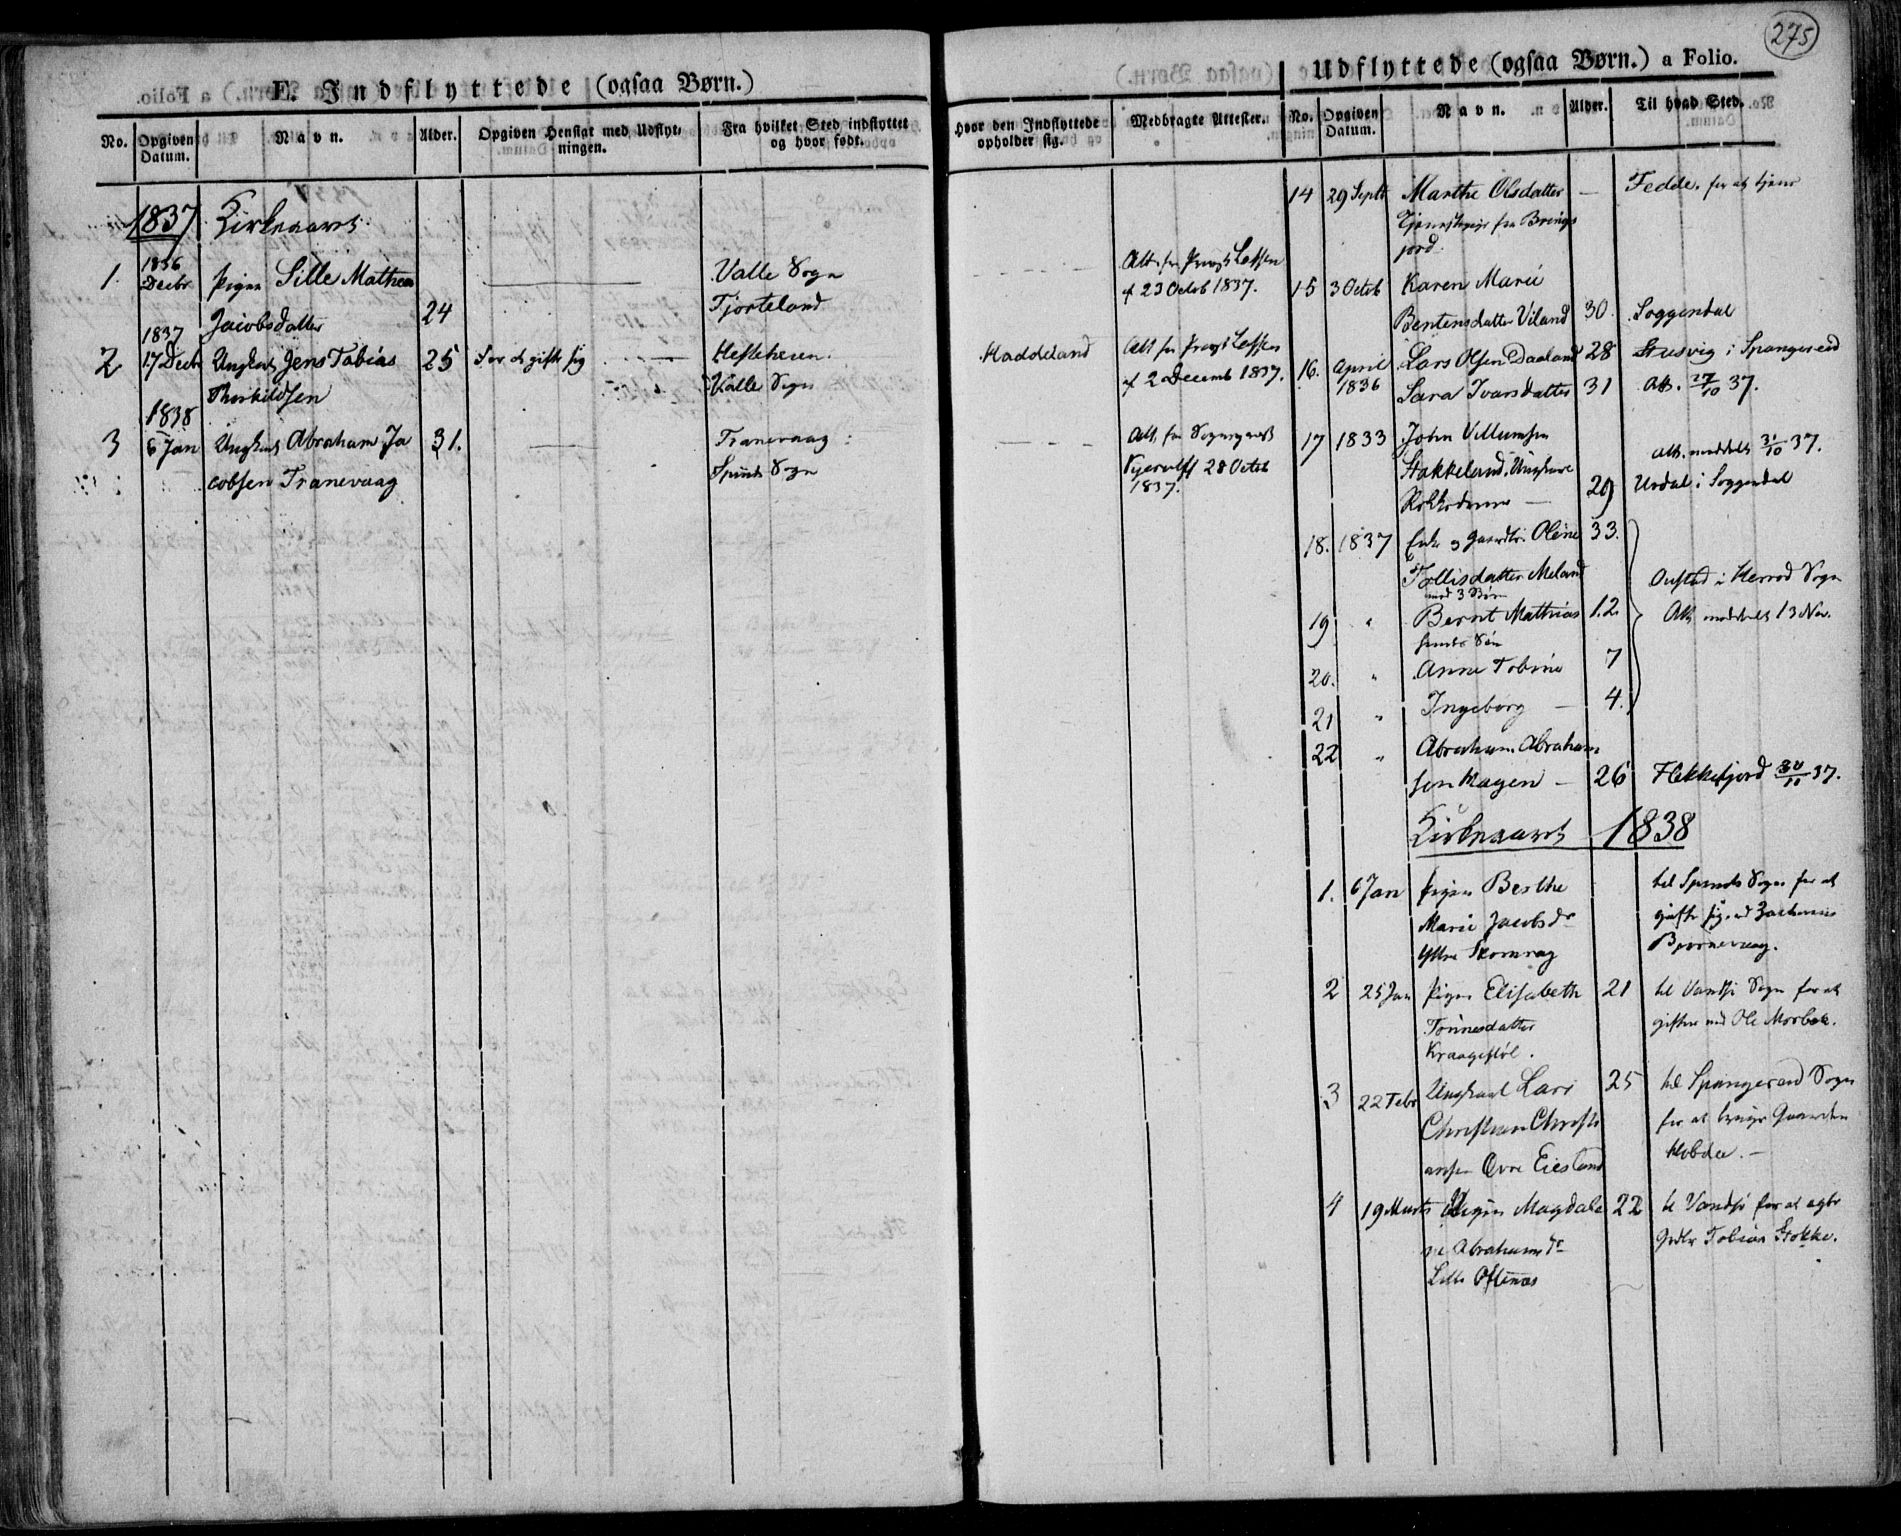 275
E. Indflyttede (ogsaa Børn.)
No.
Opgiven Datum.
Navn.
Alder.
Opgiven Hensigt med Udflyt-
ningen.
Fra hvilket Sted indflyttet
og hvor født.
Hvor den Indflyttede
opholder sig.
Medbragte Attester.
1837 Kirkeaaret
1836
1. Decbr pigen Sille Mathea
Jacobsdatter 24
Valle Sogn
Fjorteland
Att. fra Provst
of 23 Octob 1837.
1837
2 17 Decbr Ungkarl Jens Tobias 25 For at gifte sig
Thorkildsen
Valle Sogn
Haddeland
Att fra Provst
of 2 Decemb 1837.
1838
3 6 Jan Ungkarl Abraham Ja 31.
cobsen Tranevaag
Tranevaag
Spinds Sogn
Att. fra Sognepræst
28 Octob
1837.
Udflyttede (ogsaa Børn.) a Folio.
No.
Opgiven Datum.
Navn.
Alder.
Til hvad Sted.
14 29 Septb Marthe Olsdatter — Fedde. for at tjene
Tjenestepige fra Brings
jord.
15 3 Octob Karen Marie
Bentensdatter Viland 30. Soggendal
16. April Lars Olsen Daaland 28 i Spangereid
1836 Sara Ivarsdatter 31 Att. 27/10 37.
17 1833 John Villumsen
Stakkeland, Ungkarl
29
Att. meddelt 31/10 37.
Urdal i Soggendal
18. 1837 Enke Oline 33.
Tollisdatter Meland
med 3 Børn
19 " Bernt Mathias 12.
hendes Søn
20. " Anne Tobine 7
21 " Ingeborg — 4.
i Herred Sogn
Att meddelt 13 Nov.
22 " Abraham Abraham
sen Hagen — 26 Flekkefjord 30/11 37.
Kirkeaaret 1838
1. 6 Jan pigen Berthe
Marie Jacobsdr
Ytre Skomrag
til Spinds Sogn for at
gifte sig
2 25 Jan pigen Elisabeth 21
Tønnesdatter
Kraagestøl.
til Vandsø Sogn for at
giftes med Ole
3 22 Febr Ungkarl Lars 25
Christian Christi
ansen Øvre Eiesland
til Spangereid Sogn
for at bruge Gaarden
4 19 Marts Pigen Magdale 22
ne Abrahamsdr
Lille Oftenæs
til Vandsø for at ægte
Tobias Stokke.